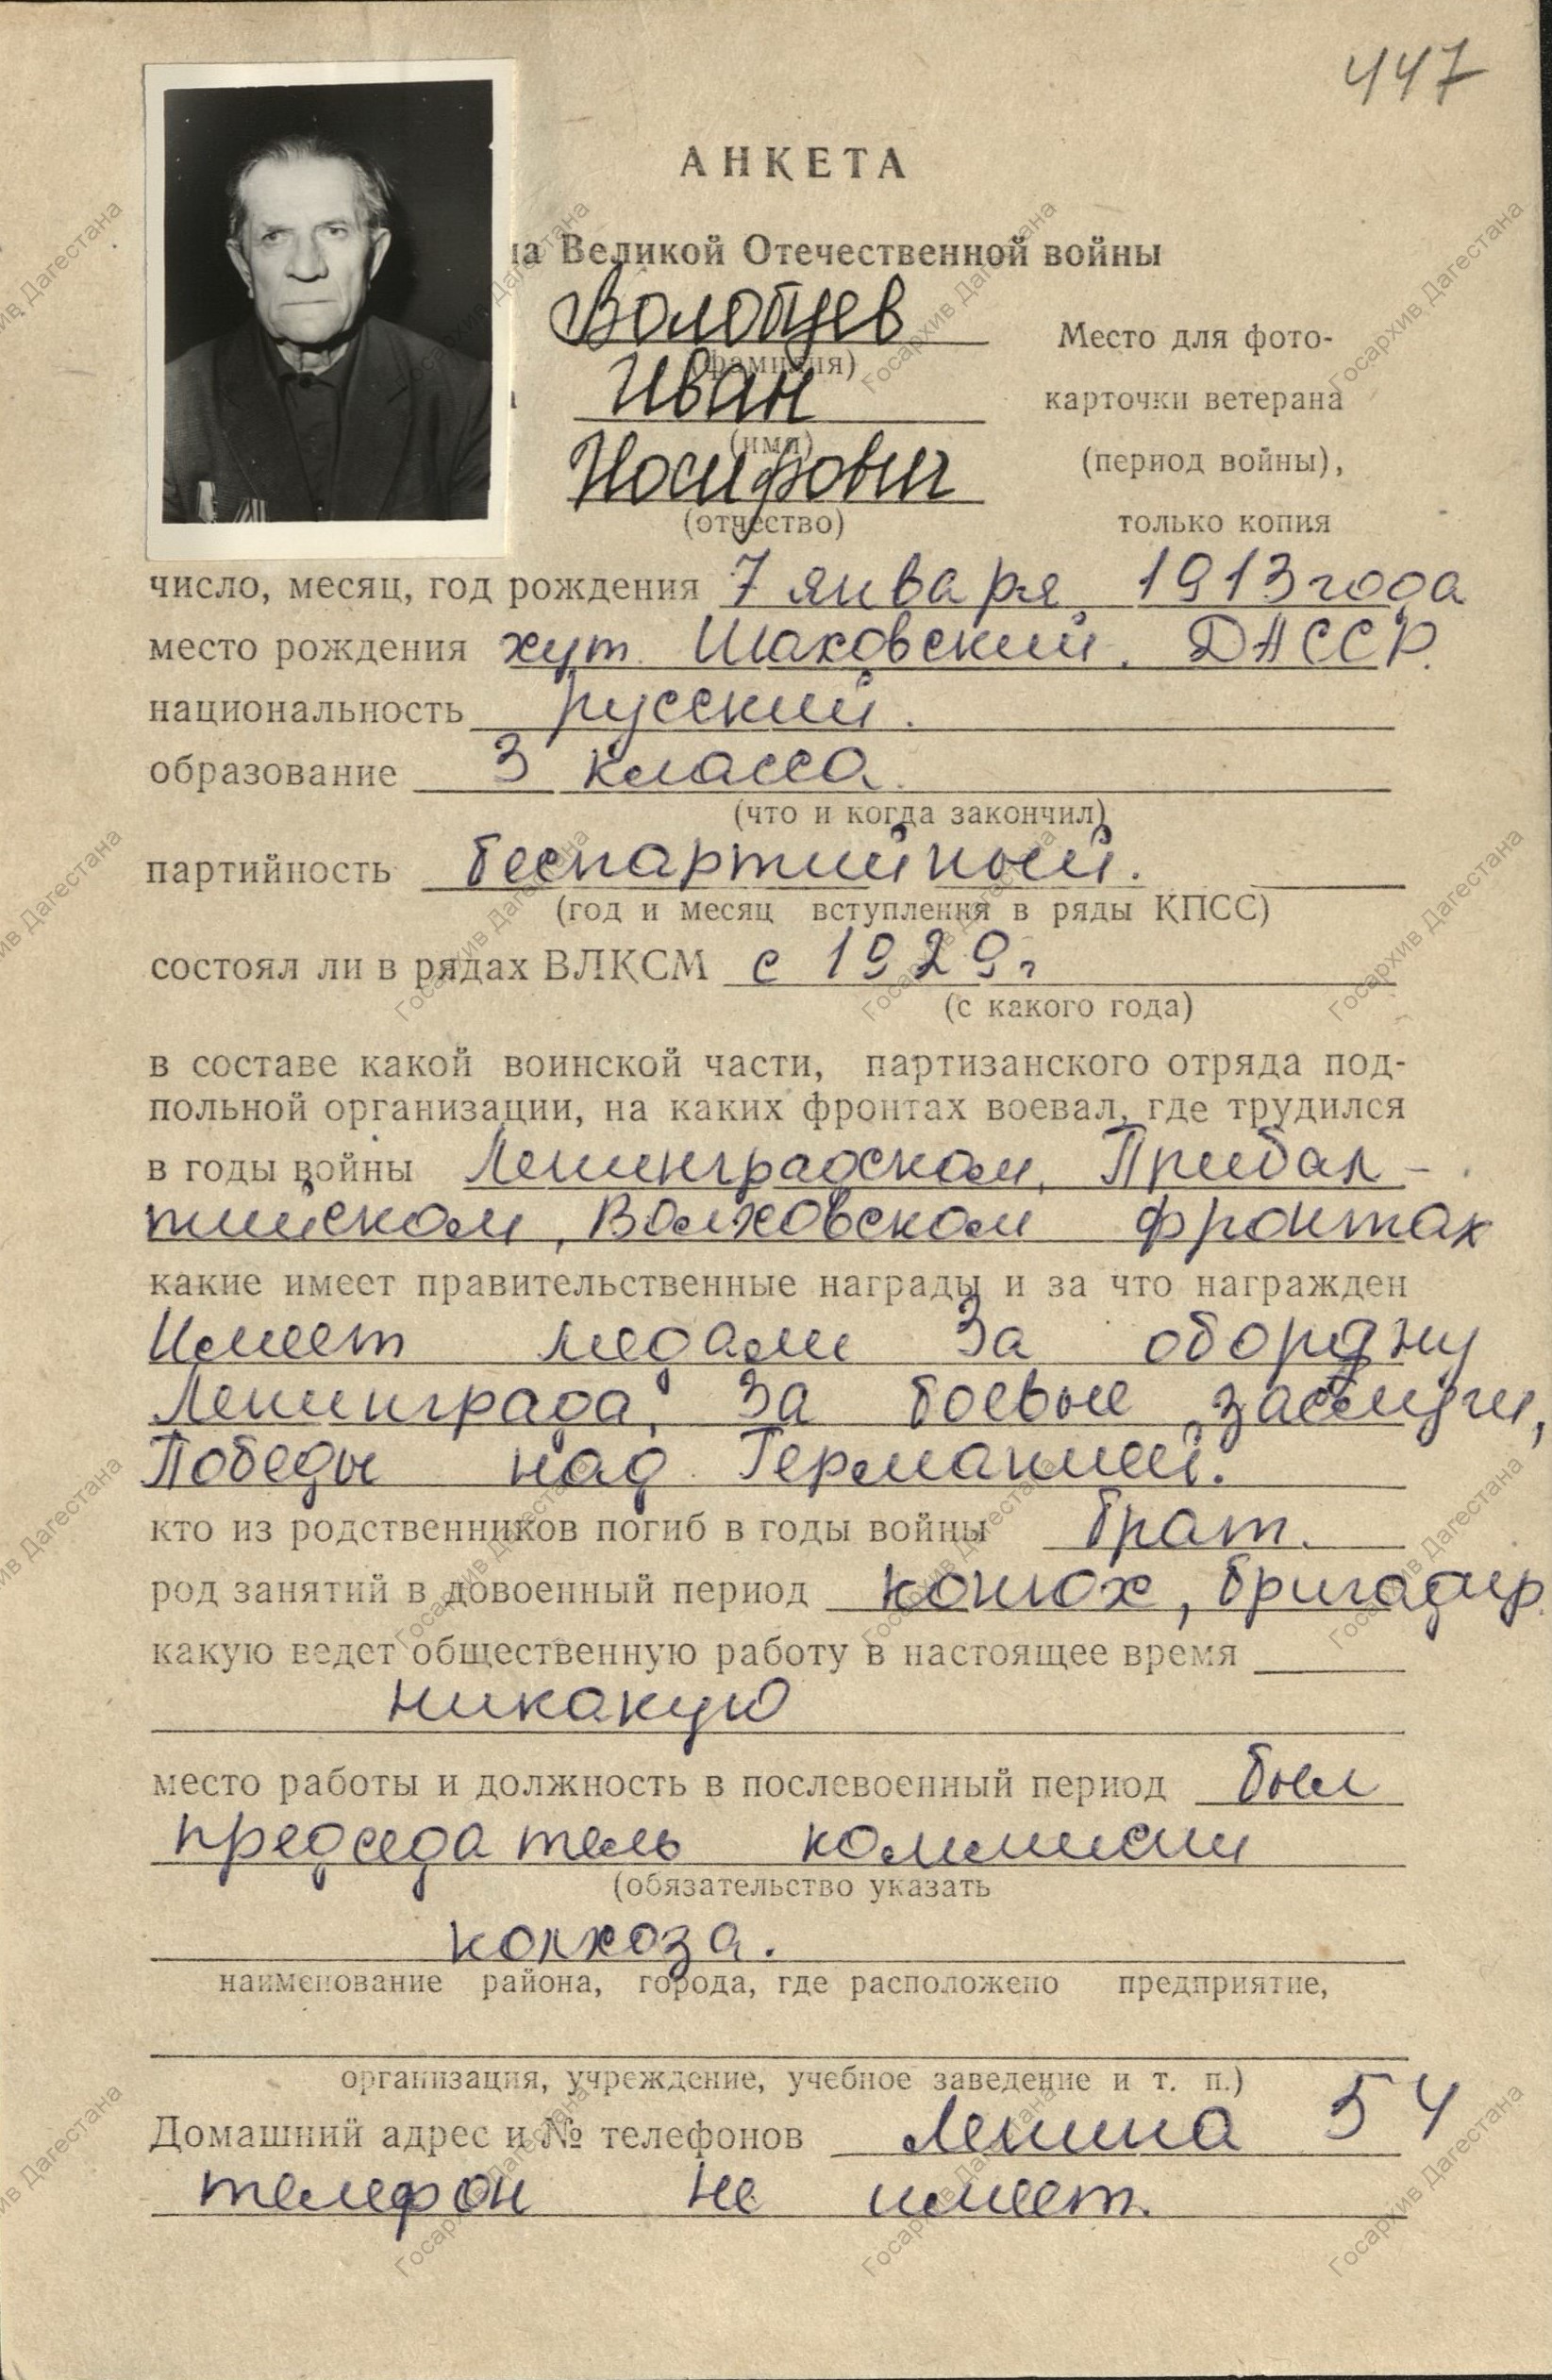 447
АНКЕТА
на Великой Отечественной войны
Волобуев
(фамилия)
Иван
(имя)
Иосифович
(отчество)
Место для фото-
карточки ветерана
(период войны),
только копия
число, месяц, год рождения 7 января 1913 года
место рождения хут. Шаховский. ДАССР.
национальность русский.
образование 3 класса.
(что и когда закончил)
партийность беспартийный.
(год и месяц вступления в ряды КПСС)
состоял ли в рядах ВЛКСМ с 1929 г
(с какого года)
в составе какой воинской части, партизанского отряда под-
польной организации, на каких фронтах воевал, где трудился
в годы войны Ленинградском, Прибал-
тийском, Волховском фронтах
какие имеет правительственные награды и за что награжден
Имеет медали За оборону
Ленинграда, За боевые заслуги,
Победы над Германией.
кто из родственников погиб в годы войны брат.
род занятий в довоенный период конюх, бригадир.
какую ведет общественную работу в настоящее время
никакую
место работы и должность в послевоенный период был
председатель коммисии
(обязательство указать
колхоза.
наименование района, города, где расположено предприятие,
организация, учреждение, учебное заведение и т. п.)
Домашний адрес и № телефонов Ленина 54
телефон не имеет.
Госархив Дагестана